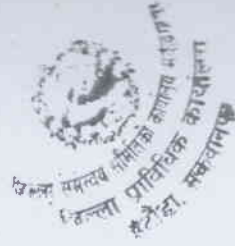 जिल्ला समन्वय समितिको कार्यालय
जिल्ला प्राविधिक कार्यालय
हेटौंडा, मकवानपुर